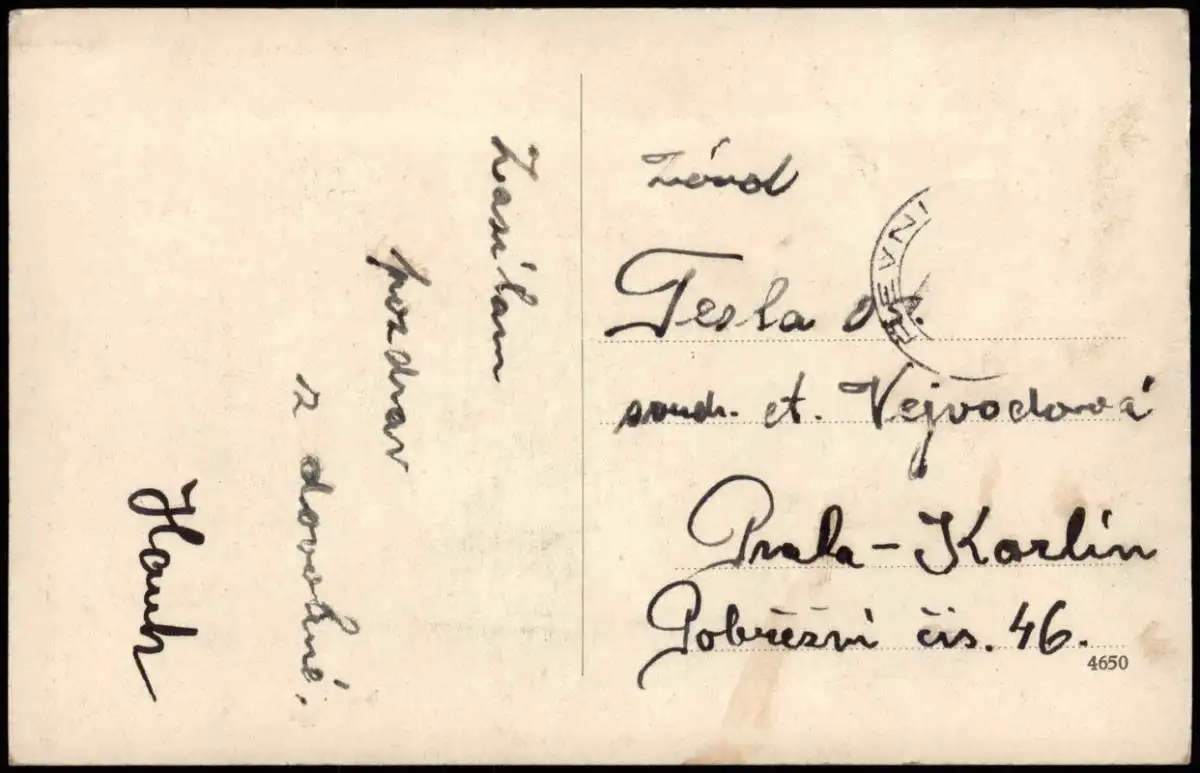 Zasílám
pozdrav
z dovolné.
Hanh
Závod
Tesla
soudr. et. Vejvodová
Praha - Karlín
Pobřežní čís. 46.
4650